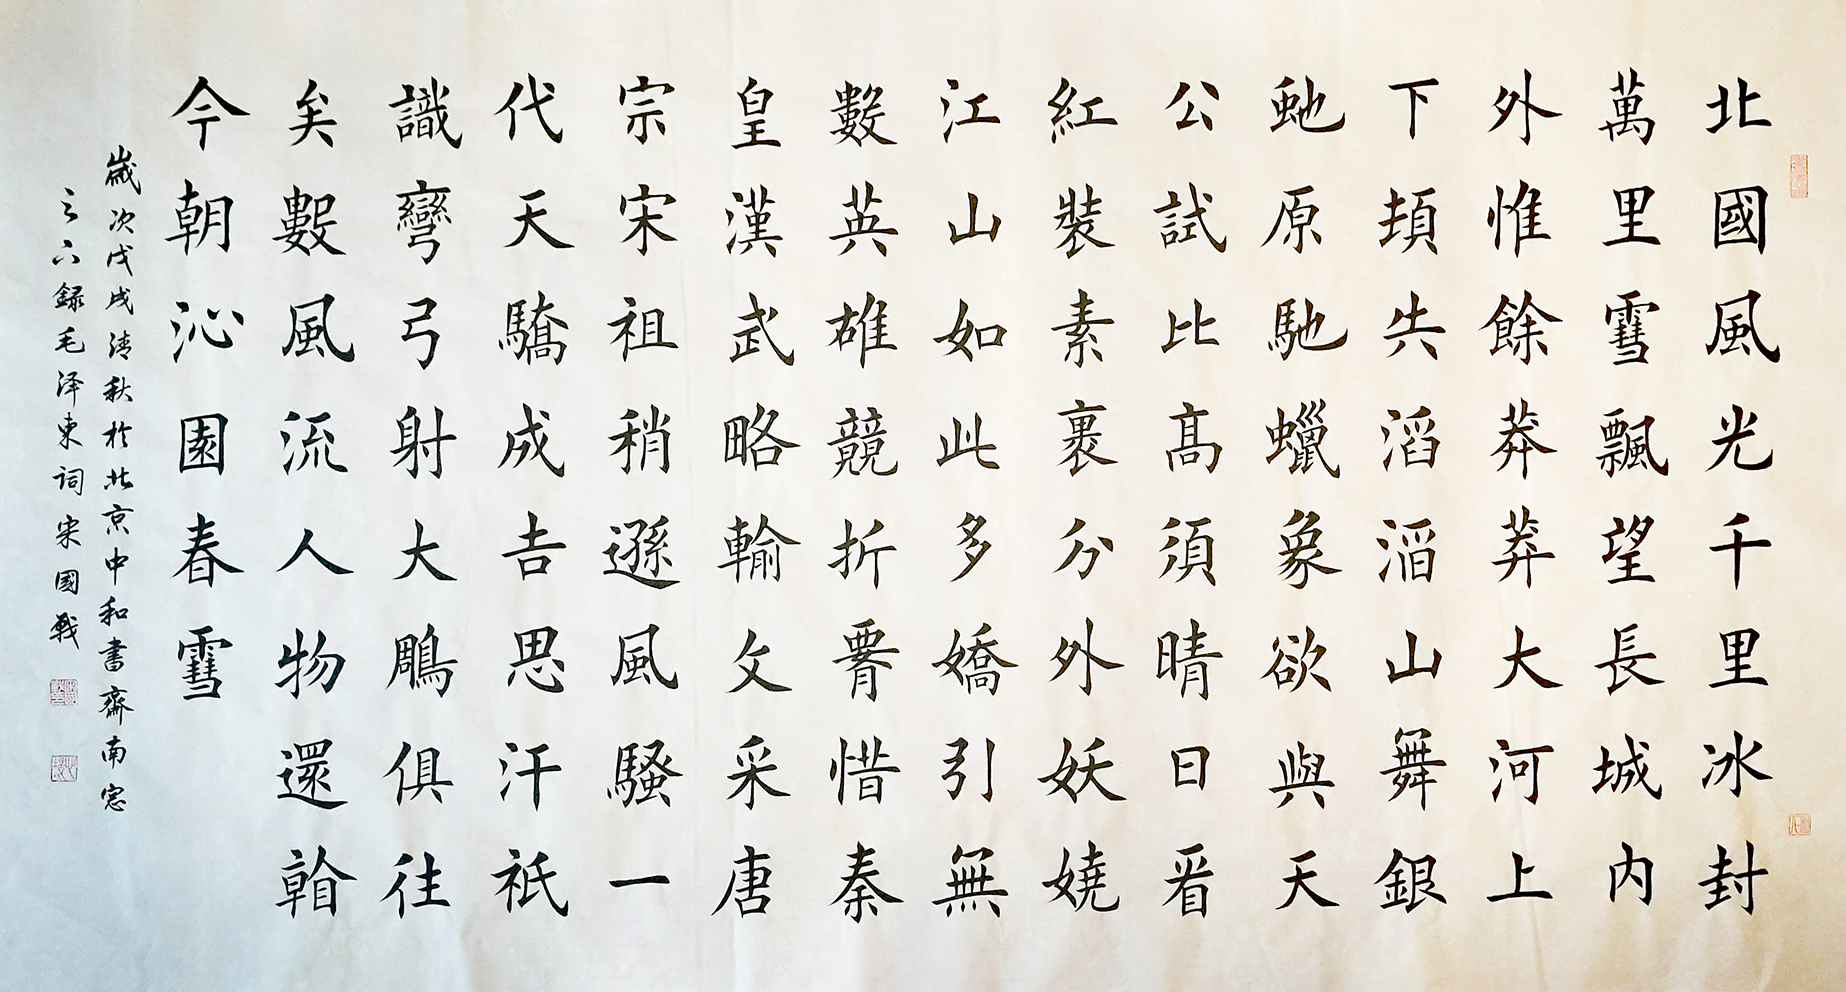 北國風光千里冰封
萬里雪飄望長城内
外惟餘莽莽大河上
下頓失滔滔山舞銀
虵原馳蠟象欲與天
公試比髙須晴日看
紅裝素裹分外妖嬈
江山如此多嬌引無
數英雄競折腰惜秦
皇漢武略輸文采唐
宗宋祖稍遜風騷一
代天驕成吉思汗祇
識彎弓射大鵰俱往
矣數風流人物還看
今朝沁園春雪
歲次戊戌清秋於北京中和書齋南窓
之下録毛泽東詞宋國戰